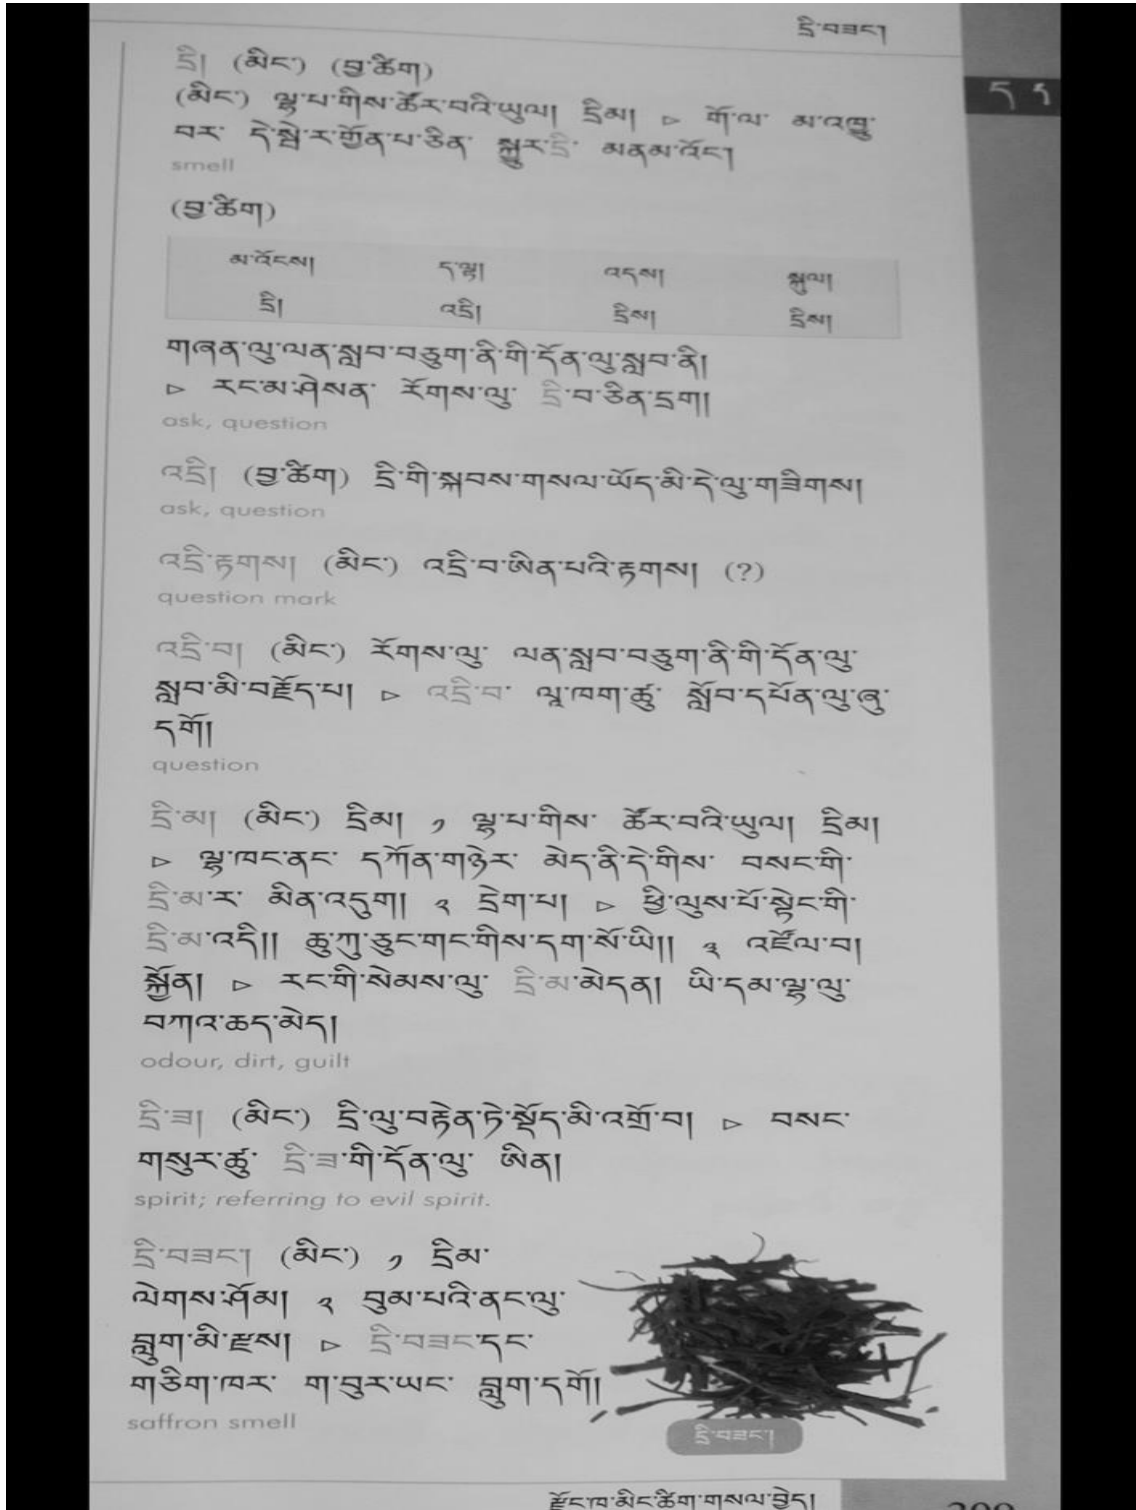 དྲི་བཟང་།
ད ད
དྲི། (མིང་) (བྱ་ཚིག)
(མིང་) ལྷ་པ་གིས་ཚོར་བའི་ཡུལ། དྲིམ། ▷ གོ་ལ་ མ་འཁྱུ་
བར་ དེ་སྦེ་ར་གྱོན་པ་ཅིན་ སྐྱུར་དྲི་ མནམ་འོང་།
smell
(བྱ་ཚིག)
མ་འོངས། ད་ལྟ། འདས། སྐུལ།
དྲི། འདྲི། དྲིས། དྲིས།
གཞན་ལུ་ལན་སླབ་བཅུག་ནི་གི་དོན་ལུ་སླབ་ནི།
▷ རང་མ་ཤེསན་ རོགས་ལུ་ དྲི་བ་ཅིན་དྲག།
ask, question
འདྲི། (བྱ་ཚིག) དྲི་གི་སྐབས་གསལ་ཡོད་མི་དེ་ལུ་གཟིགས།
ask, question
འདྲི་རྟགས། (མིང་) འདྲི་བ་ཨིན་པའི་རྟགས། (?)
question mark
འདྲི་བ། (མིང་) རོགས་ལུ་ ལན་སླབ་བཅུག་ནི་གི་དོན་ལུ་
སླབ་མི་བརྗོད་པ། ▷ འདྲི་བ་ ལཱ་ཁག་ཚུ་ སློབ་དཔོན་ལུ་ཞུ་
དགོ།
question
དྲི་མ། (མིང་) དྲིམ། ༡ ལྷ་པ་གིས་ ཚོར་བའི་ཡུལ། དྲིམ།
▷ ལྷ་ཁང་ནང་ དཀོན་གཉེར་ མེད་ནི་དེ་གིས་ བསང་གི་
དྲི་མ་ར་ མིན་འདུག། ༢ དྲེག་པ། ▷ ཕྱི་ལུས་པོ་སྟེང་གི་
དྲི་མ་འདི།། ཆུ་ཀུ་ཅུང་གང་གིས་དག་སོ་ཡི།། ༣ འཛོལ་བ།
སྐྱོན། ▷ རང་གི་སེམས་ལུ་ དྲི་མ་མེདན། ཡི་དམ་ལྷ་ལུ་
བཀའ་ཆད་མེད།
odour, dirt, guilt
དྲི་ཟ། (མིང་) དྲི་ལུ་བརྟེན་ཏེ་སྡོད་མི་འགྲོ་བ། ▷ བསང་
གསུར་ཚུ་ དྲི་ཟ་གི་དོན་ལུ་ ཨིན།
spirit; referring to evil spirit.
དྲི་བཟང་། (མིང་) ༡ དྲིམ་
ལེགས་ཤོམ། ༢ བུམ་པའི་ནང་ལུ་
བླུག་མི་རྫས། ▷ དྲི་བཟང་དང་
གཅིག་ཁར་ ག་བུར་ཡང་ བླུག་དགོ།
saffron smell
དྲི་བཟང་།
རྫོང་ཁ་མིང་ཚིག་གསལ་བྱེད།